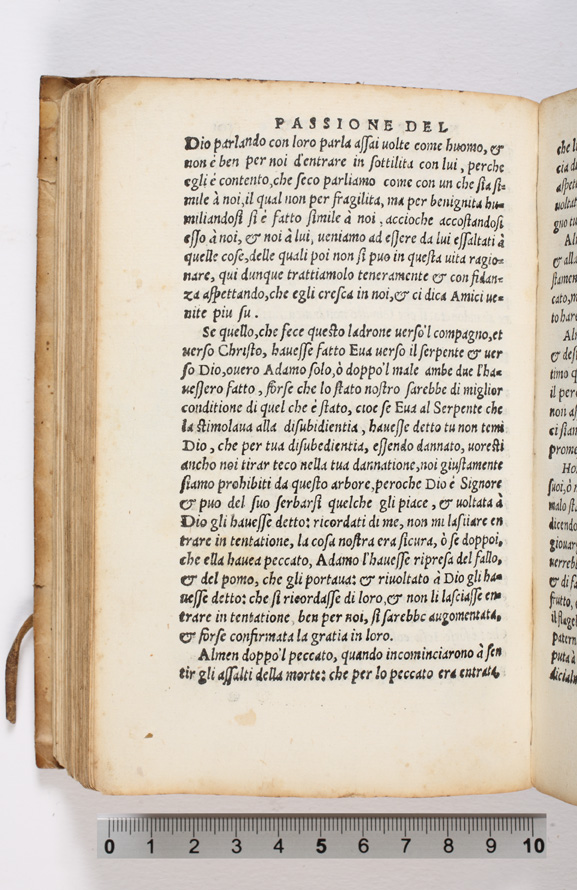 PASSIONE DEL
Dio parlando con loro parla assai uolte come huomo, &
non è ben per noi d'entrare in sottilita con lui, perche
egli è contento, che seco parliamo come con un che sia si-
mile à noi, il qual non per fragilita, ma per benignita hu-
miliandosi si è fatto simile à noi, accioche accostandosi
esso à noi, & noi à lui, ueniamo ad essere da lui essaltati à
quelle cose, delle quali poi non si puo in questa uita ragio-
nare, qui dunque trattiamolo teneramente & con fidan-
za aspettando, che egli cresca in noi, & ci dica Amici ue-
nite piu su.
Se quello, che fece questo ladrone uerso'l compagno, et
uerso Christo, hauesse fatto Eua uerso il serpente & uer
so Dio, ouero Adamo solo, ò doppo'l male ambe due l'ha-
uessero fatto, forse che lo stato nostro sarebbe di miglior
conditione di quel che è stato, cioe se Eua al Serpente che
la stimolaua alla disubidientia, hauesse detto tu non temi
Dio, che per tua disubedientia, essendo dannato, uoresti
ancho noi tirar teco nella tua dannatione, noi giustamente
siamo prohibiti da questo arbore, peroche Dio è Signore
& puo del suo serbarsi quelche gli piace, & uoltata à
Dio gli hauesse detto: ricordati di me, non mi lasciare en
trare in tentatione, la cosa nostra era sicura, ò se doppoi,
che ella hauea peccato, Adamo l'hauesse ripresa del fallo,
& del pomo, che gli portaua: & riuoltato à Dio gli ha-
uesse detto: che si ricordasse di loro, & non li lasciasse en-
trare in tentatione, ben per noi, si sarebbe augomentata,
& forse confirmata la gratia in loro.
Almen doppo'l peccato, quando incominciarono à sen
tir gli assalti della morte: che per lo peccato era entrata,
0 1 2 3 4 5 6 7 8 9 10